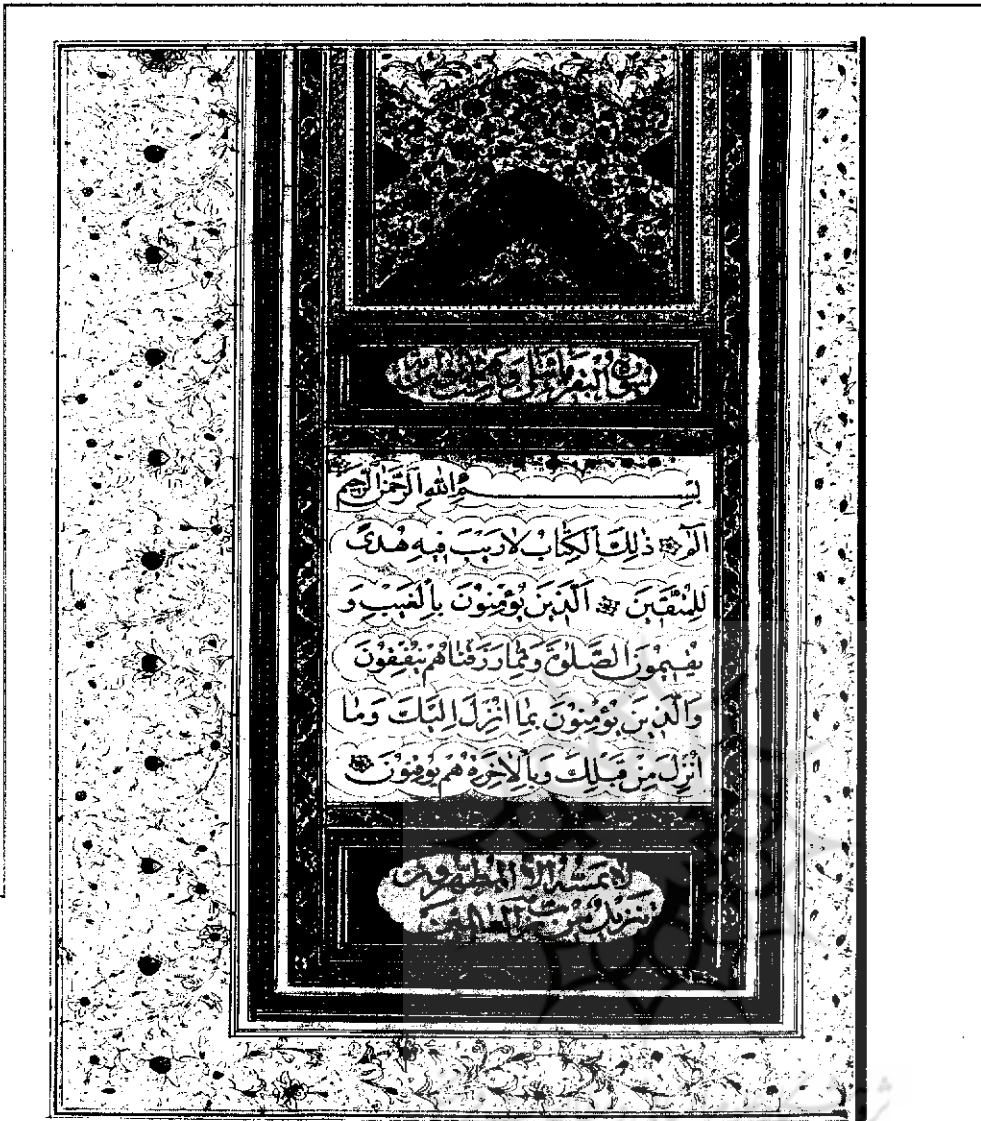 سورة البقرة مائتان و
بِسْمِ اللّٰهِ الرَّحْمٰنِ الرَّحِيمِ
الٓمٓ ذٰلِكَ الْكِتَابُ لَارَيْبَ فِيهِ هُدًى
لِلْمُتَّقِينَ الَّذِينَ يُؤْمِنُونَ بِالْغَيْبِ وَ
يُقِيمُونَ الصَّلٰوةَ وَمِمَّا رَزَقْنَاهُمْ يُنْفِقُونَ
وَالَّذِينَ يُؤْمِنُونَ بِمَا اُنْزِلَ اِلَيْكَ وَمَا
اُنْزِلَ مِنْ قَبْلِكَ وَبِالْاٰخِرَةِ هُمْ يُوقِنُونَ
لَا يَمَسُّهُ اِلَّا الْمُطَهَّرُونَ
تَنْزِيلٌ مِنْ رَبِّ الْعَالَمِينَ